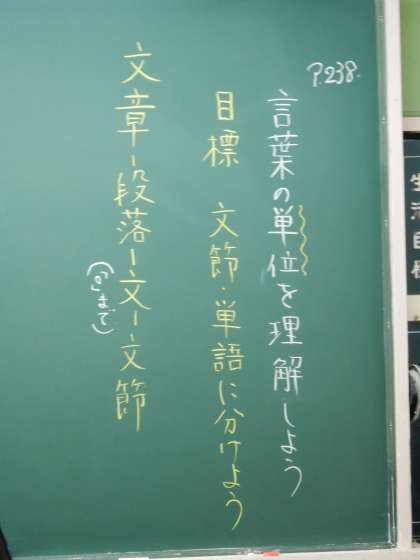 P.238.
言葉の単位を理解しよう
目標 文節・単語に分けよう
文章ー段落ー文ー文節
(。まで)
生活目標